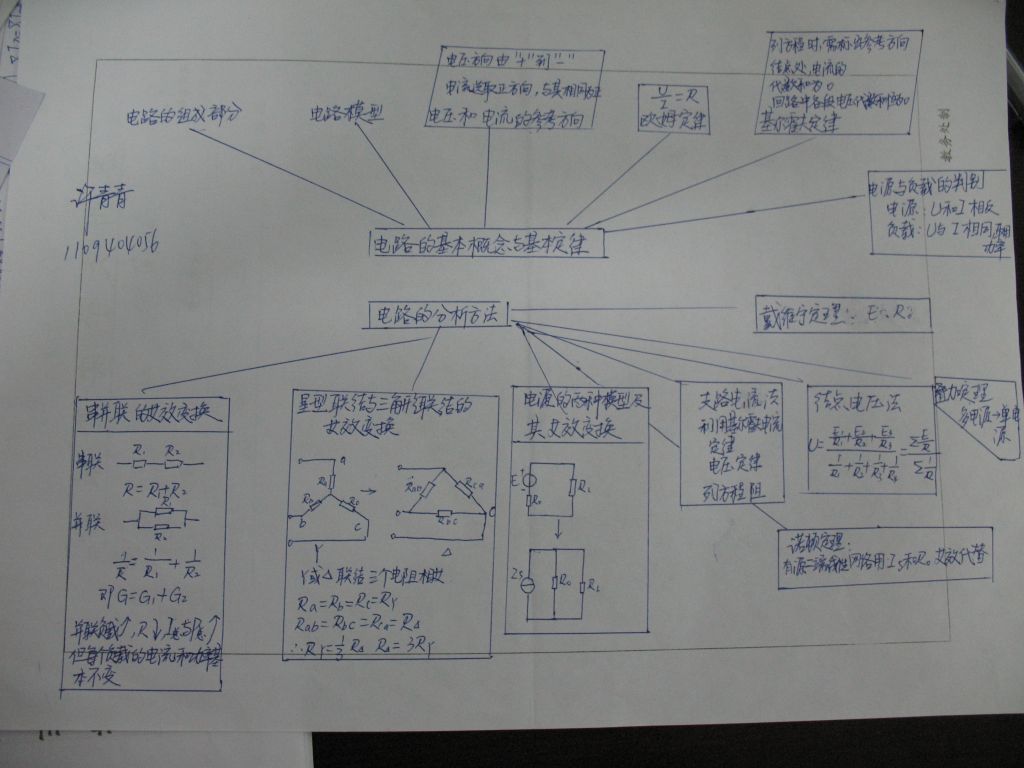 电压方向由“+”到“-”
电流选取正方向,与其相同为正
电压和电流的参考方向
列方程时,需标出参考方向
结点处,电流的
代数和为0
回路中各段电压代数和为0
基尔霍夫定律
U/I = R
欧姆定律
电路的组成部分
电路模型
教务处制
许青青
1109404056
电源与负载的判别
电源:U和I相反
负载:U与I相同
功率
电路的基本概念与基本定律
电路的分析方法
戴维宁定理:E、R0
串并联的等效变换
串联
R1 R2
R=R1+R2
并联
R1
R2
1/R = 1/R1 + 1/R2
即G=G1+G2
并联负载↑,R↓,I总与P总↑
但每个负载的电流和功率基
本不变
星型联结与三角形联结的
等效变换
a
Ra
Rb
Rc
b
c
→
Rab
Rca
Rbc
Y
△
Y或△联结三个电阻相等
Ra=Rb=Rc=RY
Rab=Rbc=Rca=R△
∴RY=1/3 R△ R△=3RY
电源的两种模型及
其等效变换
E
+
-
R0
RL
↓
Is
R0
RL
支路电流法
利用基尔霍夫电流
定律
电压定律
列方程组
结点电压法
U= (E1/R1+E2/R2+E3/R3)/(1/R1+1/R2+1/R3+1/R4) = (ΣE/R)/(Σ1/R)
叠加定理
多电源→单电
源
诺顿定理:
有源二端线性网络用Is和R0等效代替